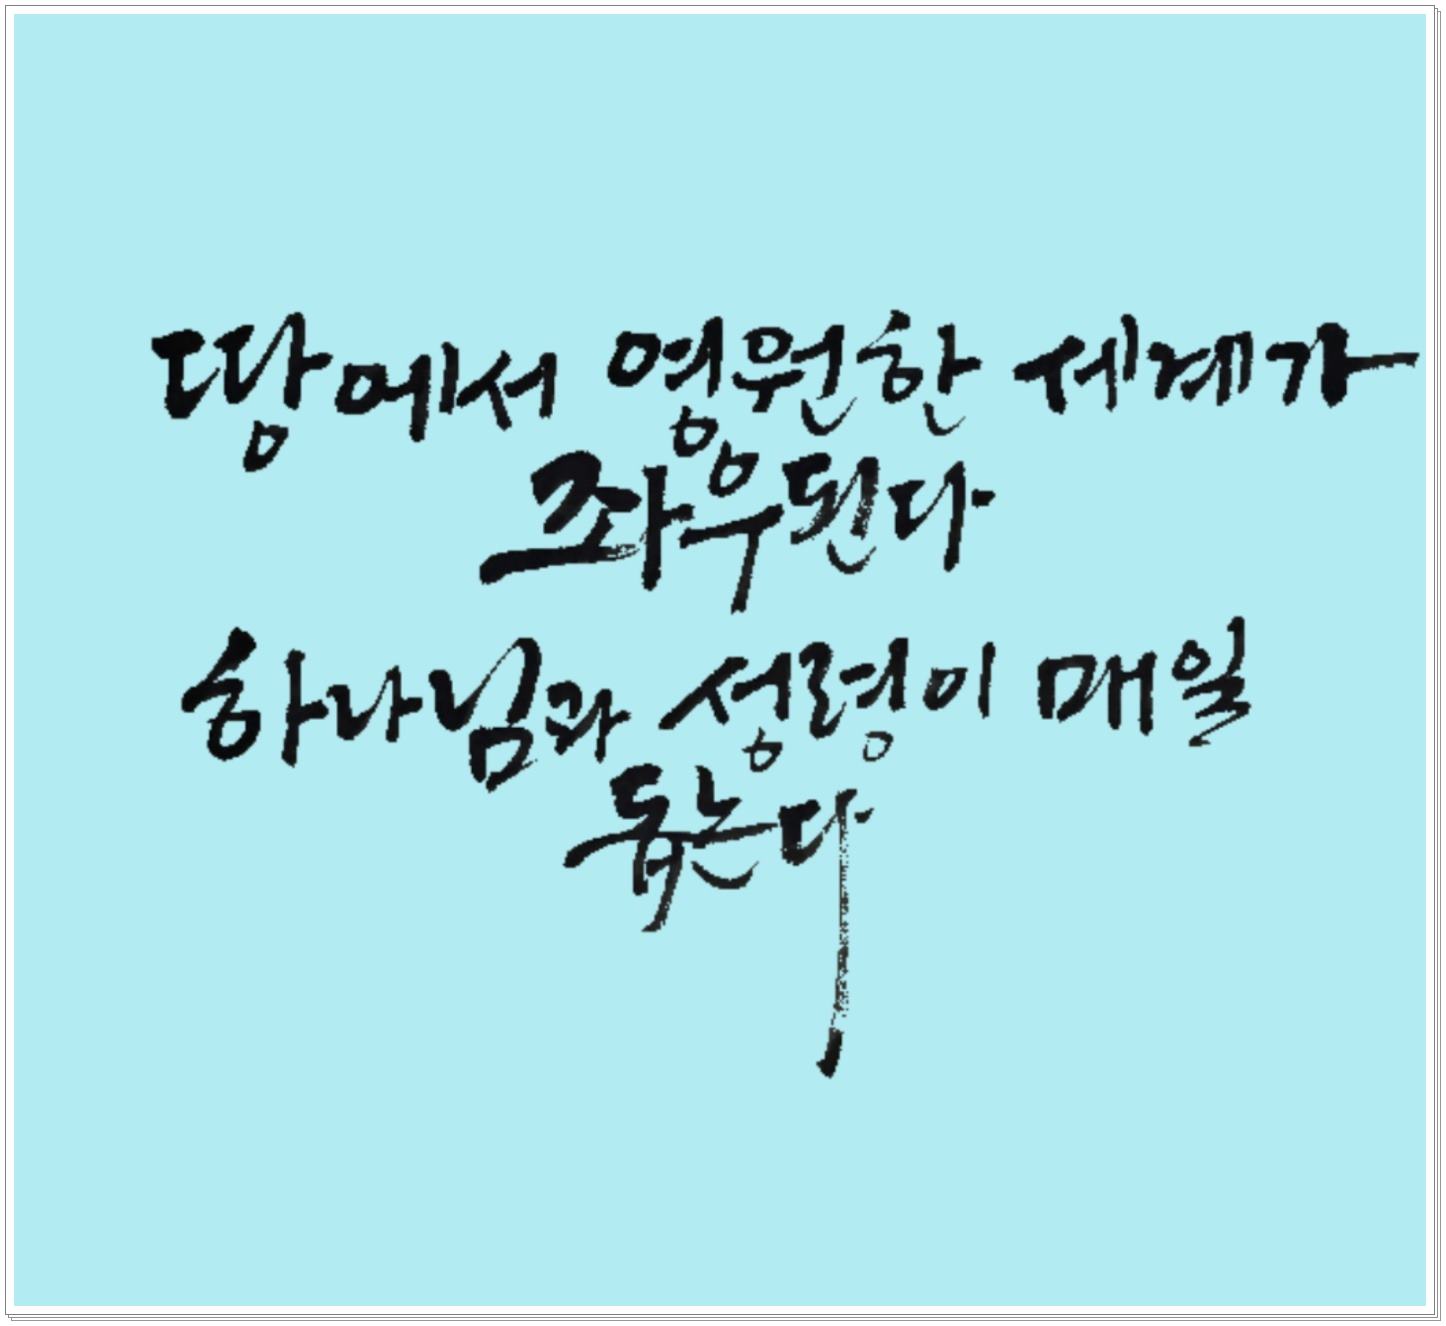 땅에서 영원한 세계가
좌우된다
하나님과 성령이 매일
돕는다